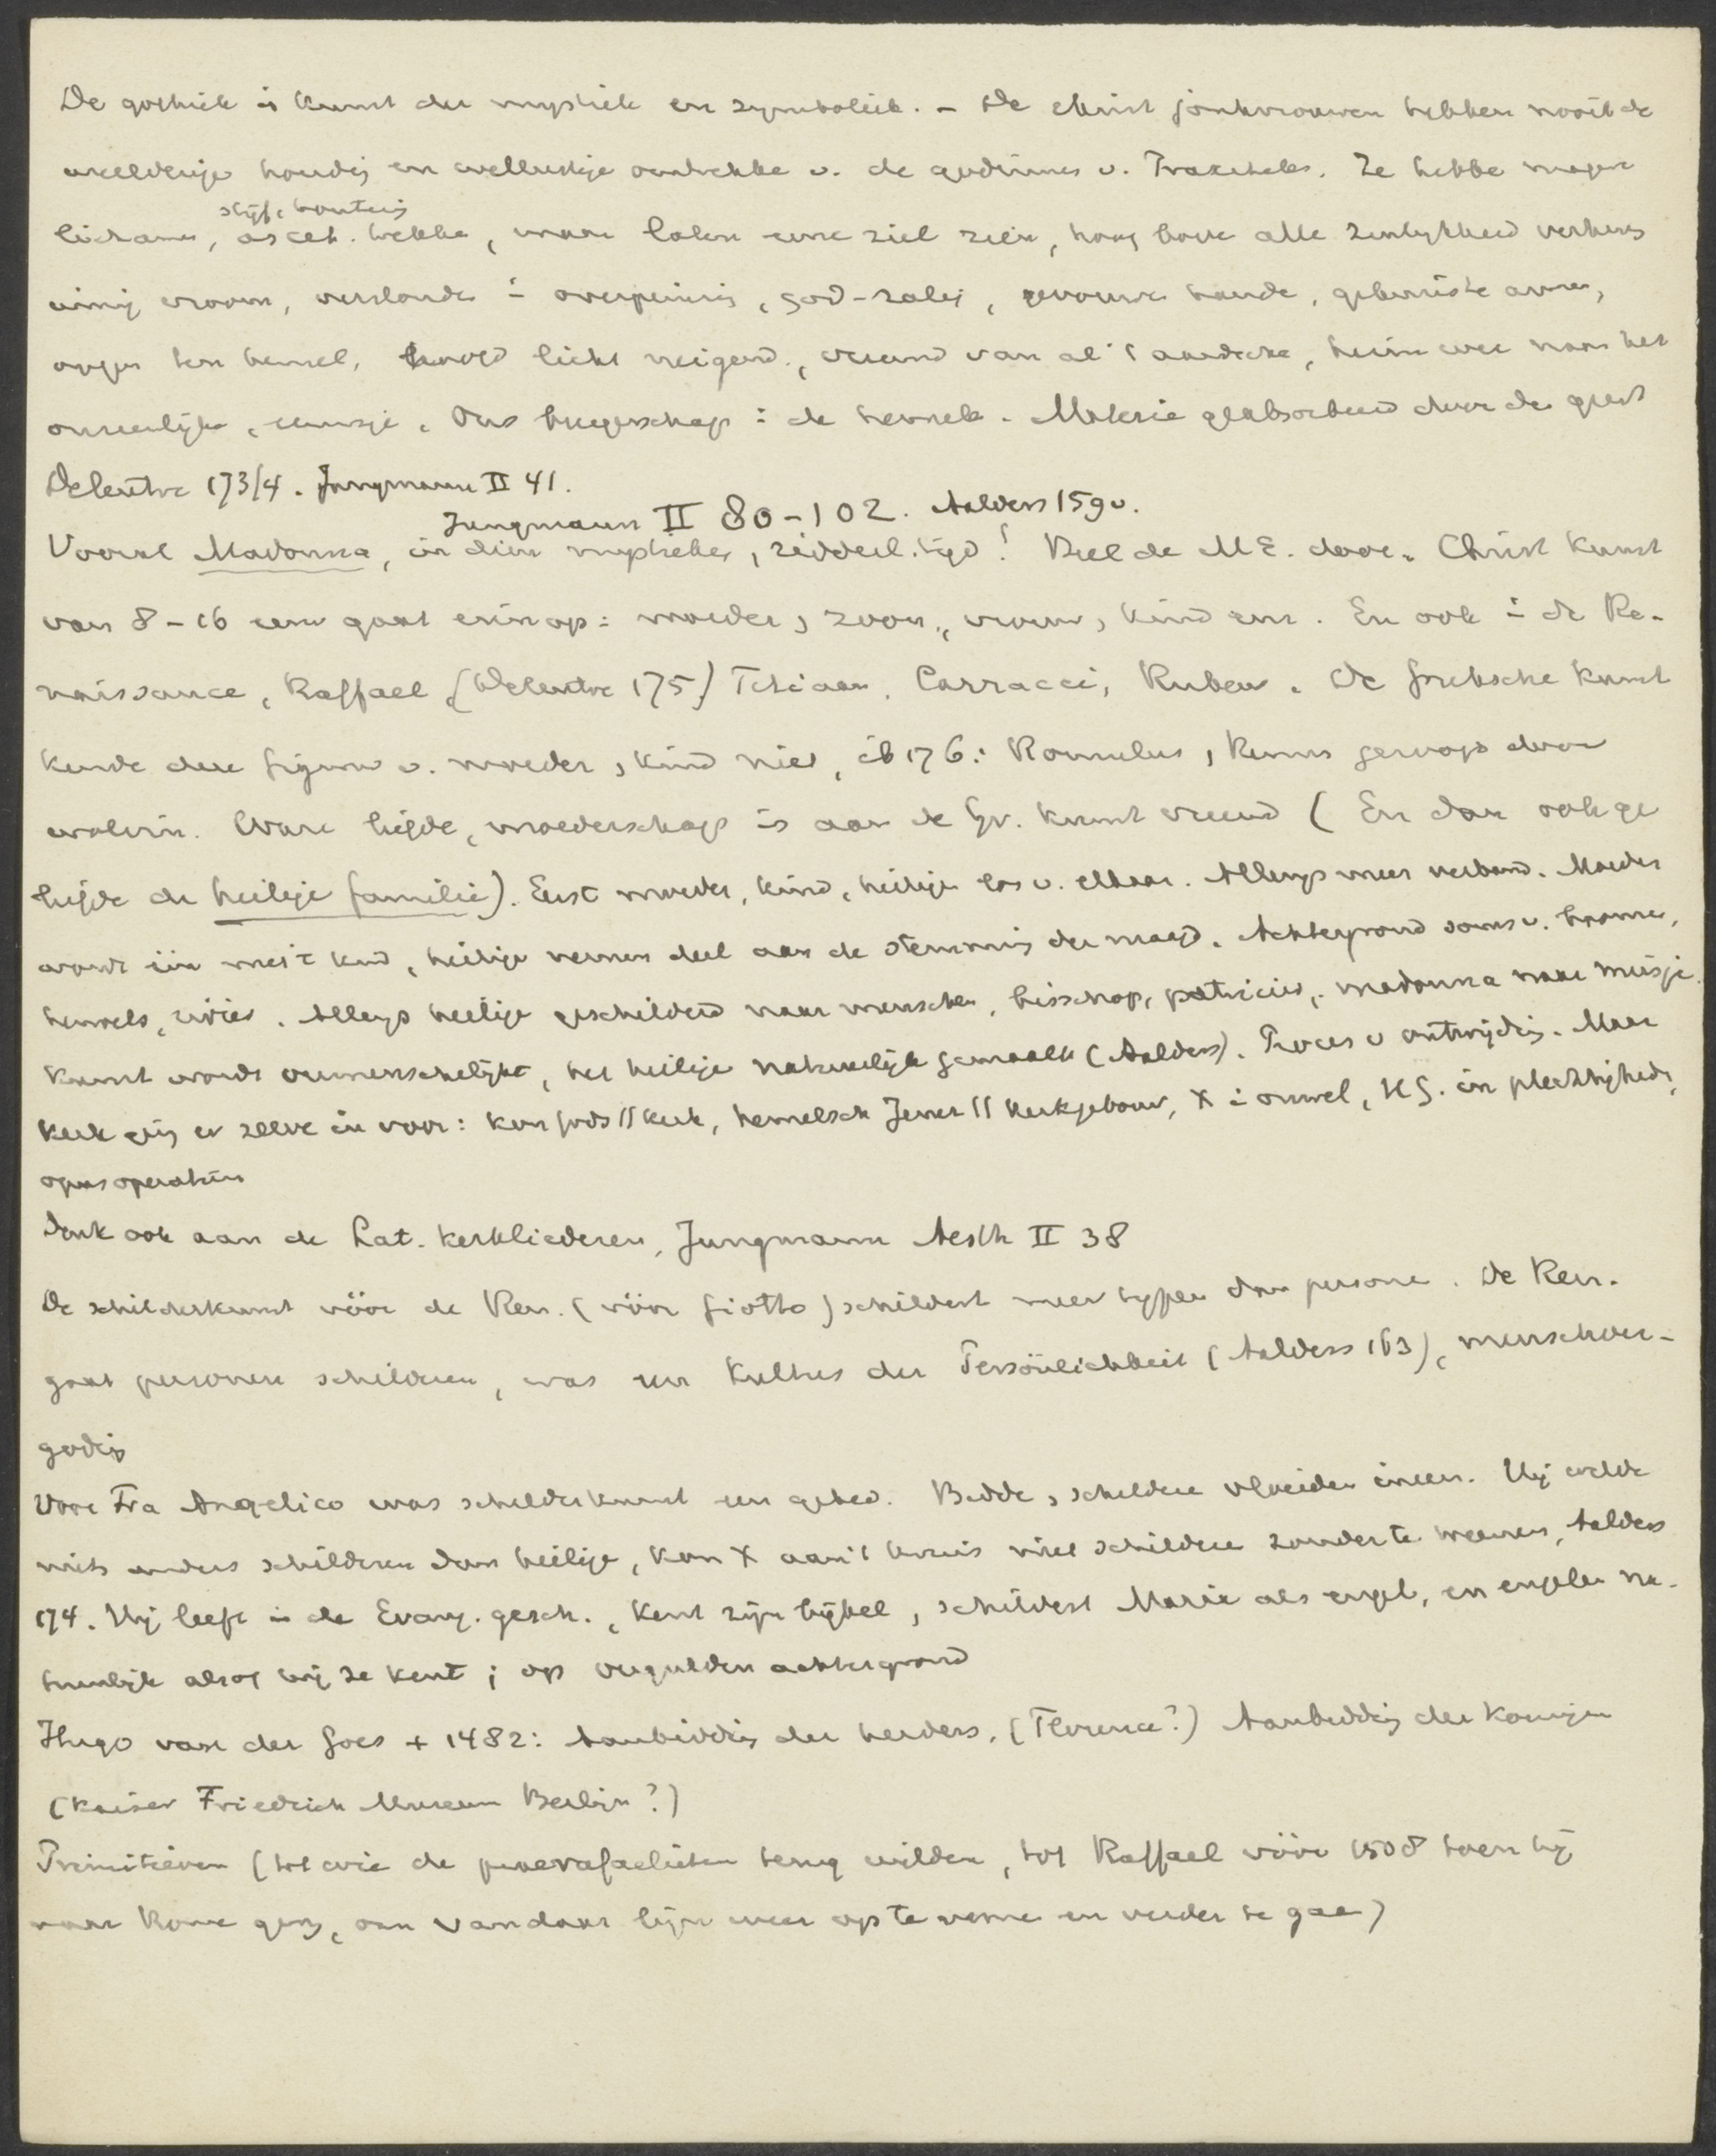 De gothiek is kunst der mystiek en symboliek. – De christ jonkvrouwen hebben nooit de
weelderige houdig en wellustige omtrekke v. de godinnes v. Praxiteles. Ze hebbe magere
stijf, houterig
lichamen, asceh. trekke, maar laten eene ziel zien, hoog bove alle zinlykheid verheve
innig vroom, verslonde i overpeinzig, god-zalig, gevouwe hande, gekruiste armen,
oogen ten hemel, hoofd licht neigend, vreemd van al 't aardsche, heimwee naar het
oneindige, eeuwige. Ons burgerschap i de hemele. Materie geabsorbeerd door den geest
Delentre 173/4. Jungmann II 41.
Jungmann II 80-102. Aalders 159v.
Vooral Madonna, in dien mystieke, ridderl. tijd! Heel de ME. door. Christ kunst
van 8-16 eeuw gaat erin op: moeder, zoon, vrouw, kind enz. En ook i de Re-
naissance, Raffael (Delentre 175) Titiaan, Carracci, Rubens. De Grieksche kunst
kende deze figuur v. moeder, kind niet, ib 176: Romulus, Remus gezoogd door
wolvin. Ware liefde, moederschap is aan de Gr. kunst vreemd (En dan ook ge
liefde de heilige familie). Eerst moeder, kind, heilige los v. elkaar. Allengs meer verband. Moeder
wordt één met 't kind, heilige nemen deel aan de stemmig der maagd. Achtergrond soms v. boomen,
heuvels, rivier. Allengs heilige geschilderd naar mensche, bisschop, patricier, madonna naar meisje.
Kunst wordt vermenschelijkt, het heilige natuurlijk gemaakt (Aalders). Proces v ontwijdig. Maar
Kerk ging er zelve in voor: kon Gods // kerk, hemelsch Jeruz // kerkgebouw, X i ouwel, HG. in plechtigheden,
opus operatum
Denk ook aan de Lat. kerkliederen, Jungmann Aesth II 38
De schilderkunst vóór de Ren. (vóór Giotto) schildert meer typen dan persone. De Ren.
gaat personen schilderen, was een Kultus der Persönlichkeit (Aalders 163), menschver-
godig
Voor Fra Angelico was schilderkunst een gebed. Bidde, schildere vloeiden ineen. Hij wilde
niets anders schilderen dan heilige, kon X aan 't kruis niet schildere zonder te weenen, Aalders
174. Hij leeft in de Evang. gesch., kent zijn bijbel, schildert Maria als engel, en engelen na-
tuurlijk alsof hij ze kent; op vergulden achtergrond
Hugo van der Goes + 1482: Aanbiddig der herders. (Florence?) Aanbiddig der Koningen
(Kaiser Friedrich Museum Berlijn?)
Primitieven (tot wie de praerafaelieten terug wilden, tot Raffael vóór 1508 toen hij
naar Rome ging, om vandaar lijn weer op te neme en verder te gaa)